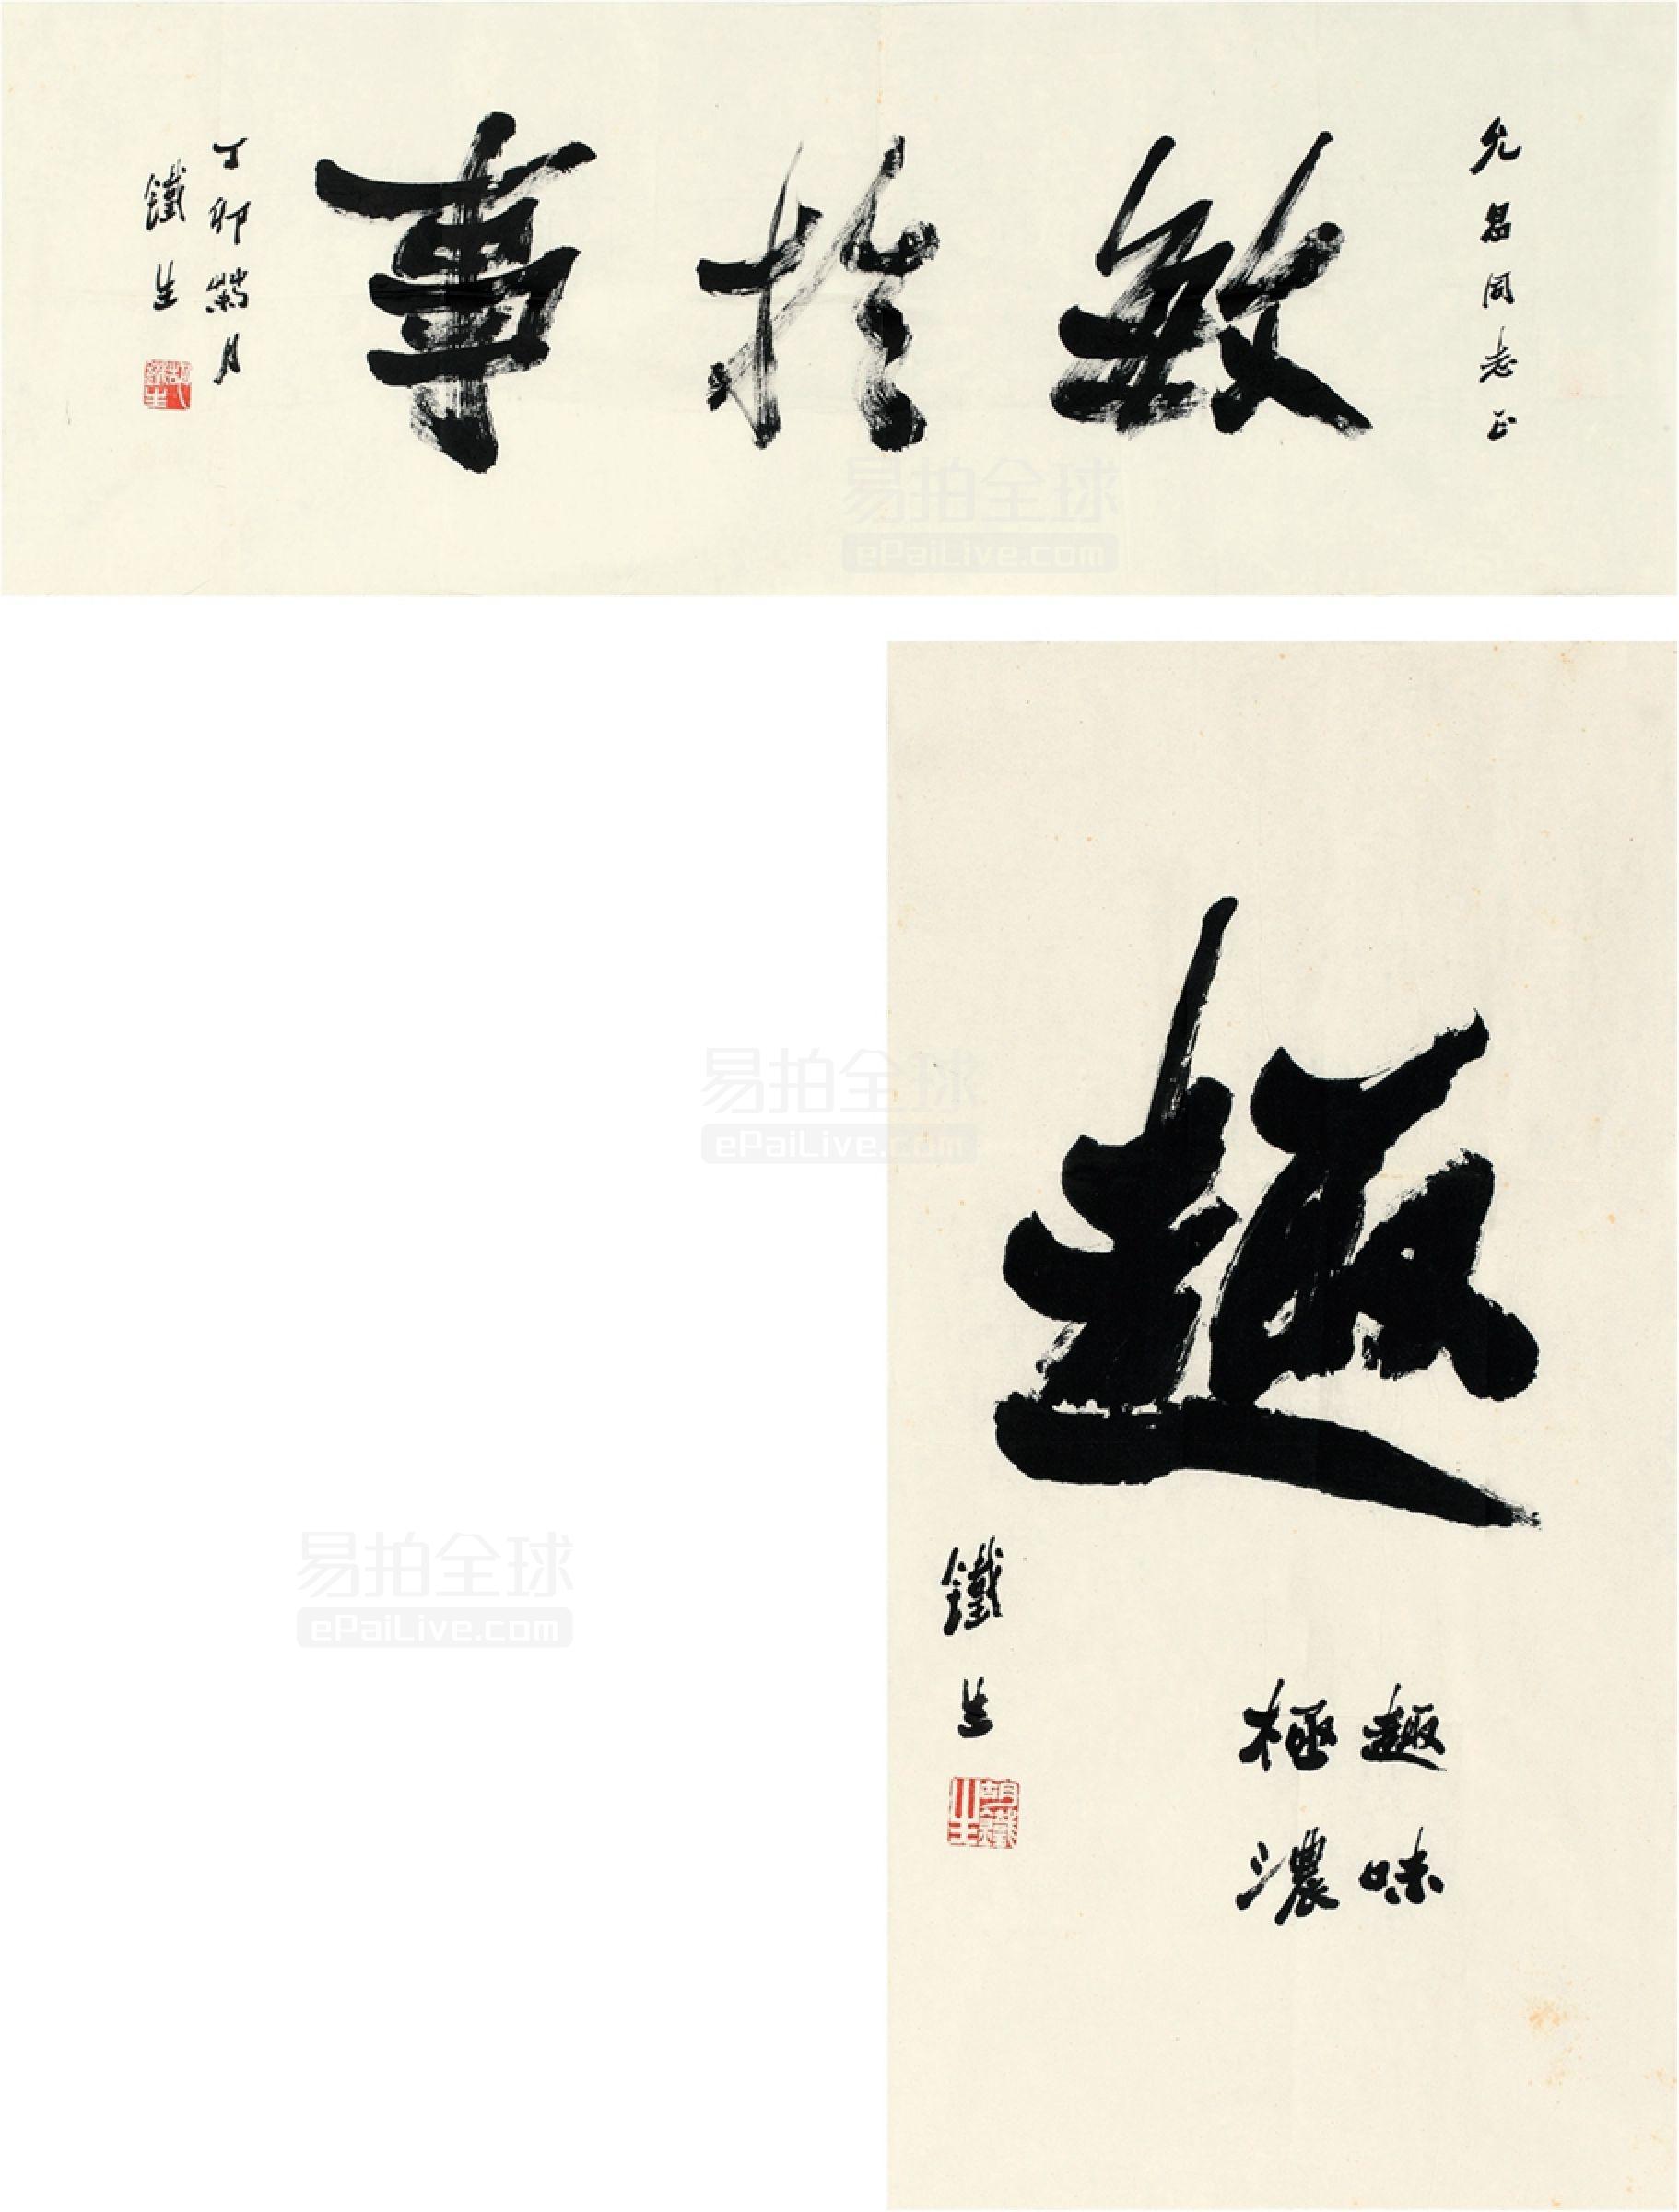 允昌同志正
敏於事
丁卯菊月
鐵生
胡鐵生
易拍全球
ePaiLive.com
趣
趣味
極濃
鐵生
胡鐵生
易拍全球
ePaiLive.com
易拍全球
ePaiLive.com